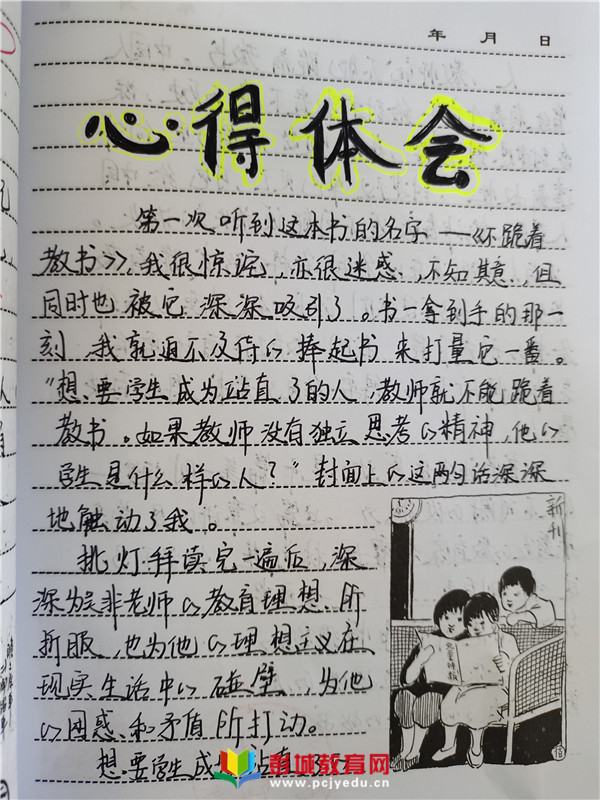 年 月 日
心得体会
第一次听到这本书的名字——《不跪着
教书》,我很惊诧,亦很迷惑,不知其意,但
同时也被它深深吸引了。书一拿到手的那一
刻,我就迫不及待的捧起书来打量它一番。
“想要学生成为站直了的人,教师就不能跪着
教书。如果教师没有独立思考的精神,他的
学生是什么样的人?”封面上的这两句话深深
地触动了我。
新刊
挑灯拜读完一遍后,深
深为吴非老师的教育理想所
折服,也为他的理想主义在
现实生活中的碰壁,为他
的困惑和矛盾所打动。
想要学生成为站直了
彭城教育网
www.pcjyedu.cn